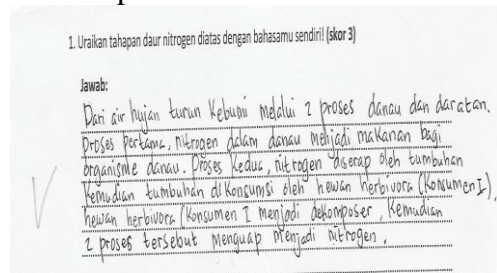 1. Uraikan tahapan daur nitrogen diatas dengan bahasamu sendiri! (skor 3)
Jawab:
Dari air hujan turun Kebumi melalui 2 proses danau dan daratan.
Proses pertama, nitrogen dalam danau menjadi makanan bagi
organisme danau. Proses kedua, nitrogen diserap oleh tumbuhan
Kemudian tumbuhan di Konsumsi oleh hewan herbivora (Konsumen I),
hewan herbivora (Konsumen I menjadi dekomposer, Kemudian
2 proses tersebut menguap menjadi nitrogen.